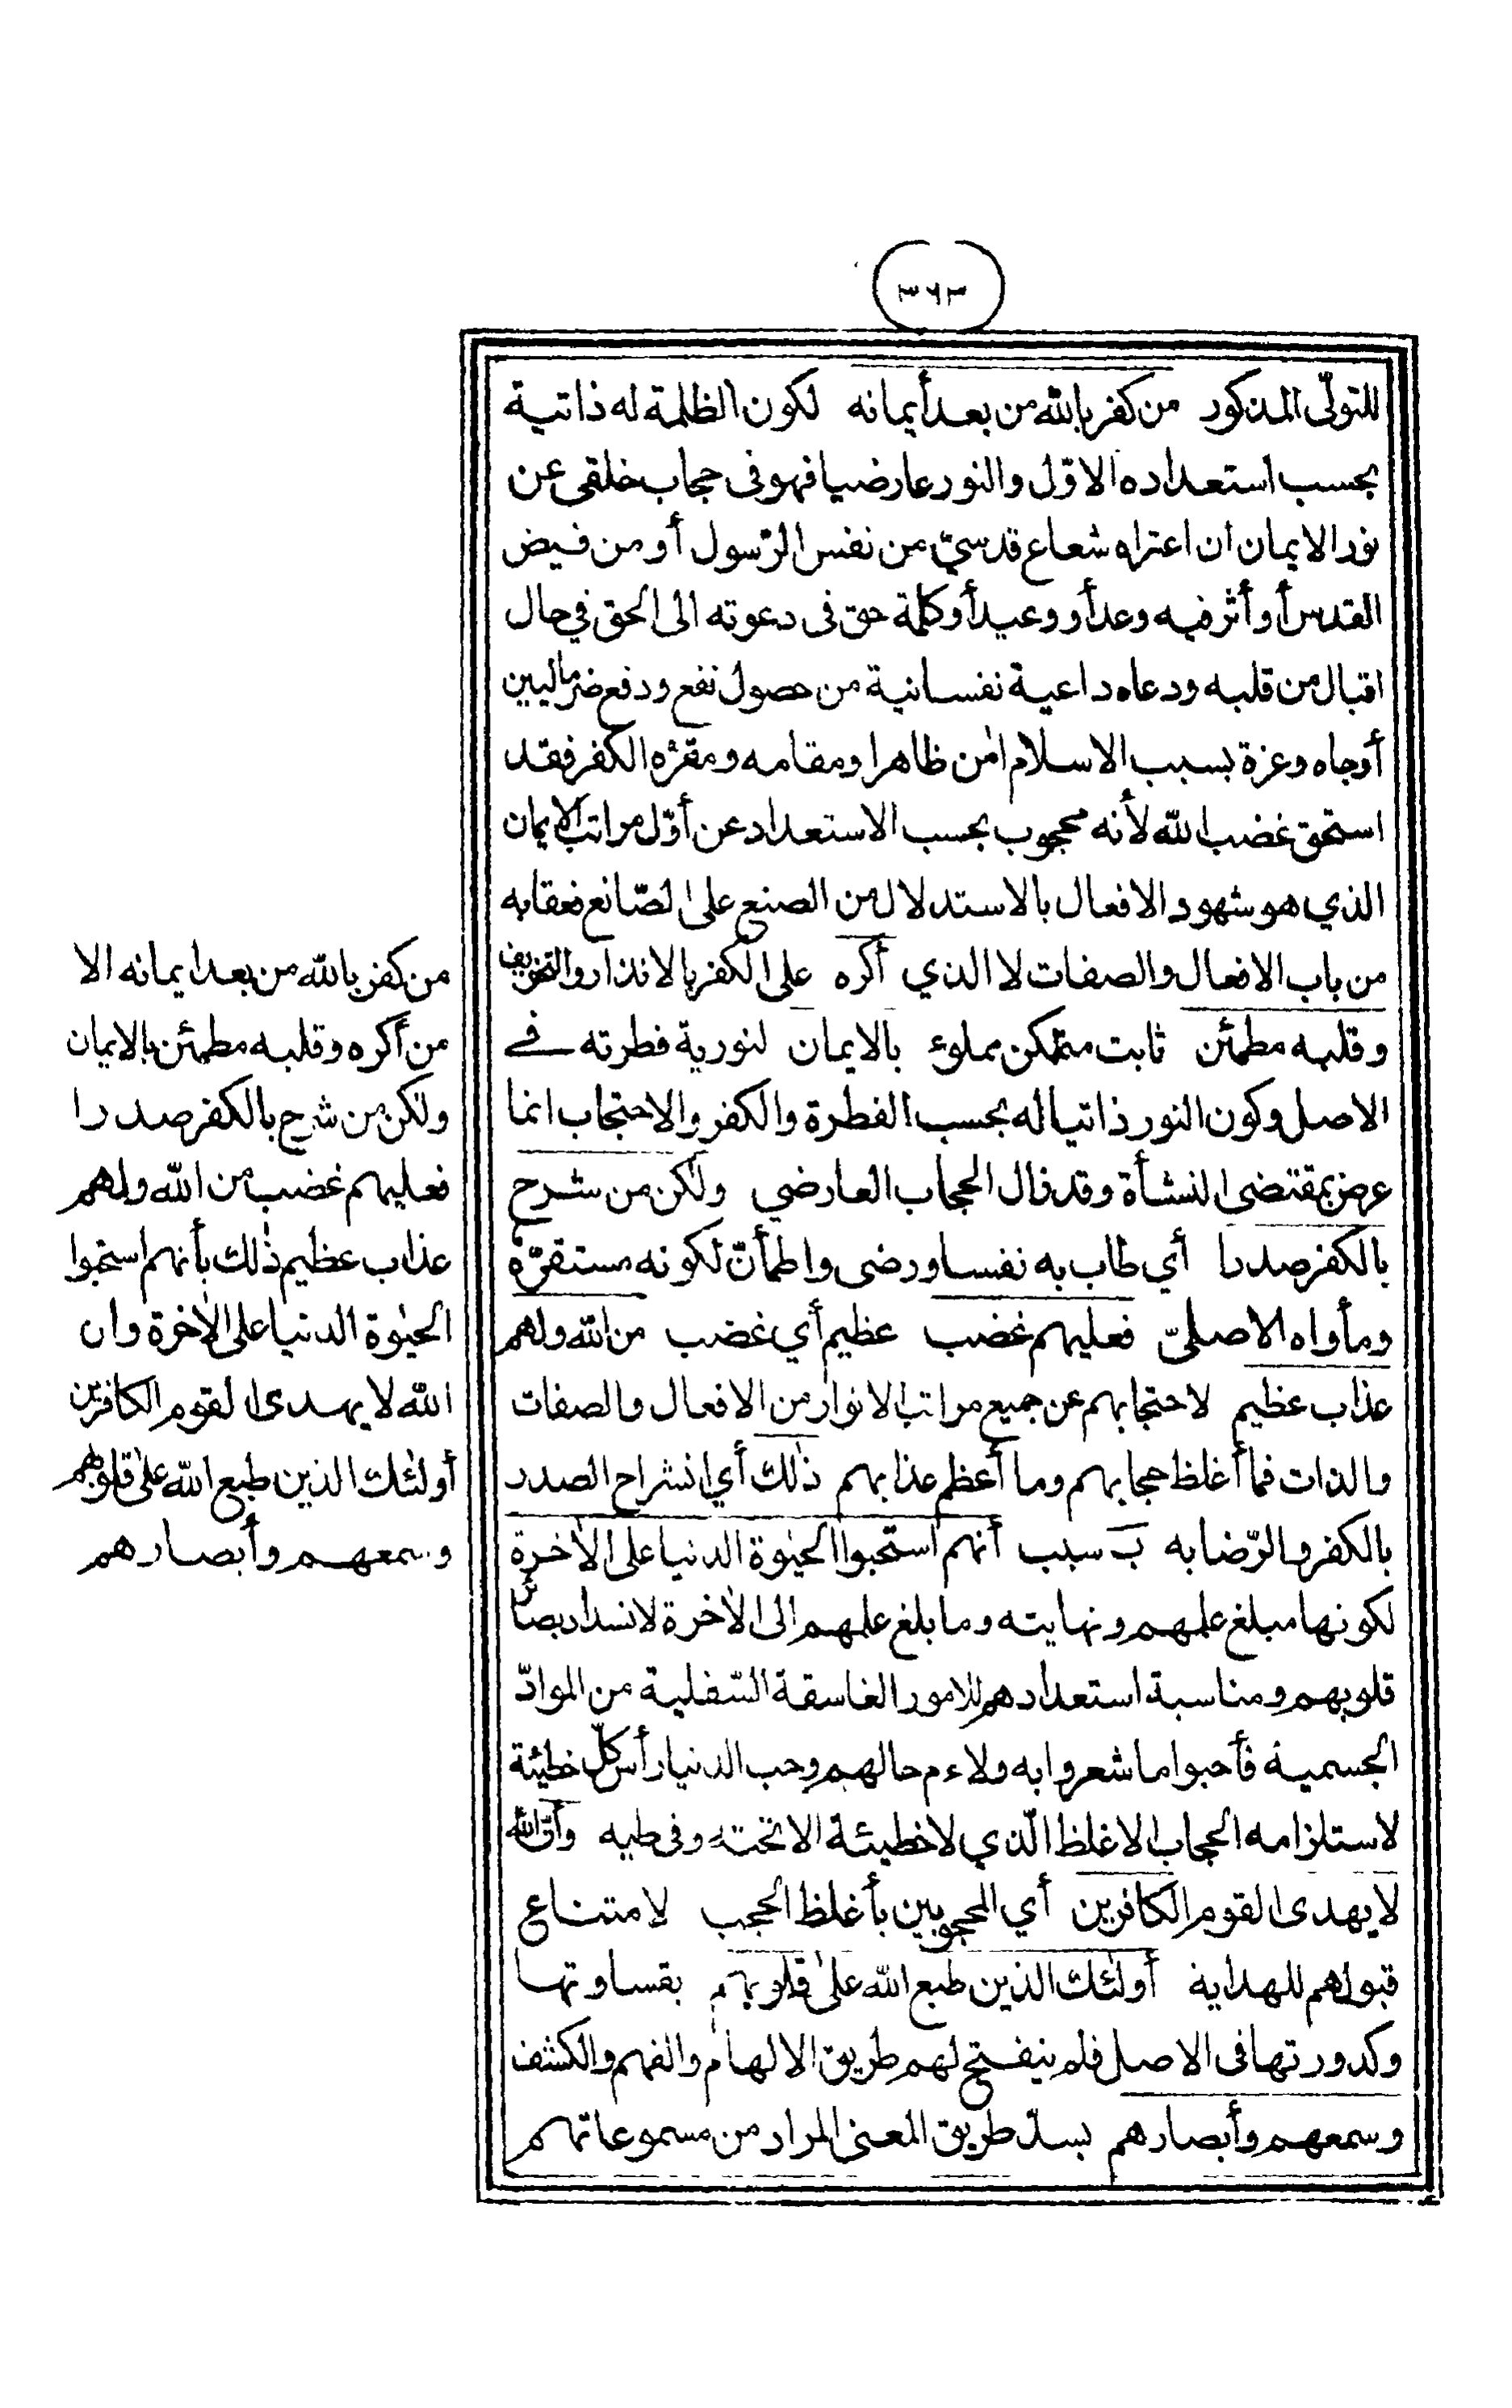 ٣٦٣
للتولّى المذكور من كفر بالله من بعد أيمانه لكون الظلمة له ذاتية
بحسب استعداده الاوّل والنور عارضيا فهو فى حجاب خلقى عن
نور الايمان ان اعتراه شعاع قدسيّ من نفس الرّسول أو من فيض
القدس أو أثر فيه وعد أو وعيد أو كلمة حق فى دعوته الى الحق في حال
اقبال من قلبه ودعاه داعية نفسانية من حصول نفع ودفع ضر ماليين
أو جاه وعزة بسبب الاسلام اٰمن ظاهرا ومقامه ومقرّه الكفر فقد
استحق غضب الله لأنه محجوب بحسب الاستعداد عن أوّل مراتب الايمان
الذي هو شهود الافعال بالاستدلال من الصنع على الصّانع فعقابه
من باب الافعال والصفات لا الذي أكره على الكفر بالانذار والتخويف
وقلبه مطمئن ثابت متمكن مملوء بالايمان لنورية فطرته في
الاصل وكون النور ذاتيا له بحسب الفطرة والكفر والاحتجاب انما
عرض بمقتضى النشأة وقد زال الحجاب العارضي ولٰكن من شرح
بالكفر صدرا أي طاب به نفسا ورضى واطمأنّ لكونه مستقرّه
ومأواه الاصليّ فعليهم غضب عظيم أي غضب من الله ولهم
عذاب عظيم لاحتجابهم عن جميع مراتب الانوار من الافعال والصفات
والذات فما أغلظ حجابهم وما أعظم عذابهم ذٰلك أي انشراح الصدر
بالكفر والرّضا به ب سبب أنهم استحبوا الحيٰوة الدنيا على الاٰخرة
لكونها مبلغ علمهم ونهايته وما بلغ علمهم الى الاٰخرة لانسداد بصائر
قلوبهم ومناسبة استعدادهم للامور الغاسقة السّفلية من الموادّ
الجسمية فأحبوا ما شعروا به ولاءم حالهم وحب الدنيا رأس كلّ خطيئة
لاستلزامه الحجاب الاغلظ الّذي لا خطيئة الا تحته وفى طيه وأنّ الله
لا يهدى القوم الكافرين أي المحجوبين بأغلظ الحجب لامتناع
قبولهم للهداية أولٰئك الذين طبع الله علىٰ قلوبهم بقساوتها
وكدورتها فى الاصل فلم ينفتح لهم طريق الالهام والفهم والكشف
وسمعهم وأبصارهم بسدّ طريق المعنى المراد من مسموعاتهم
من كفر بالله من بعد ايمانه الا
من أكره وقلبه مطمئن بالايمان
ولكن من شرح بالكفر صدرا
فعليهم غضب من الله ولهم
عذاب عظيم ذٰلك بأنهم استحبوا
الحيٰوة الدنيا على الاٰخرة وان
الله لا يهدى القوم الكافرين
أولٰئك الذين طبع الله علىٰ قلوبهم
وسمعهم وأبصارهم